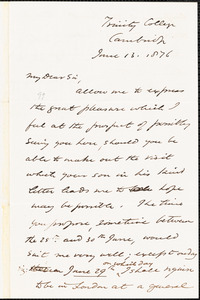 Trinity College
Cambridge
June 13. 1876
My Dear Sir,
allow me to express
the great pleasure which I
feel at the prospect of possibly
seeing you here, should you be
able to make out the visit
which your son in his kind
letter leads me to hope
may be possible. The time
you propose, sometime between
the 25th and 30th June, would
suit me very well; except
on which day
June 29th I shall
to be in London at a general